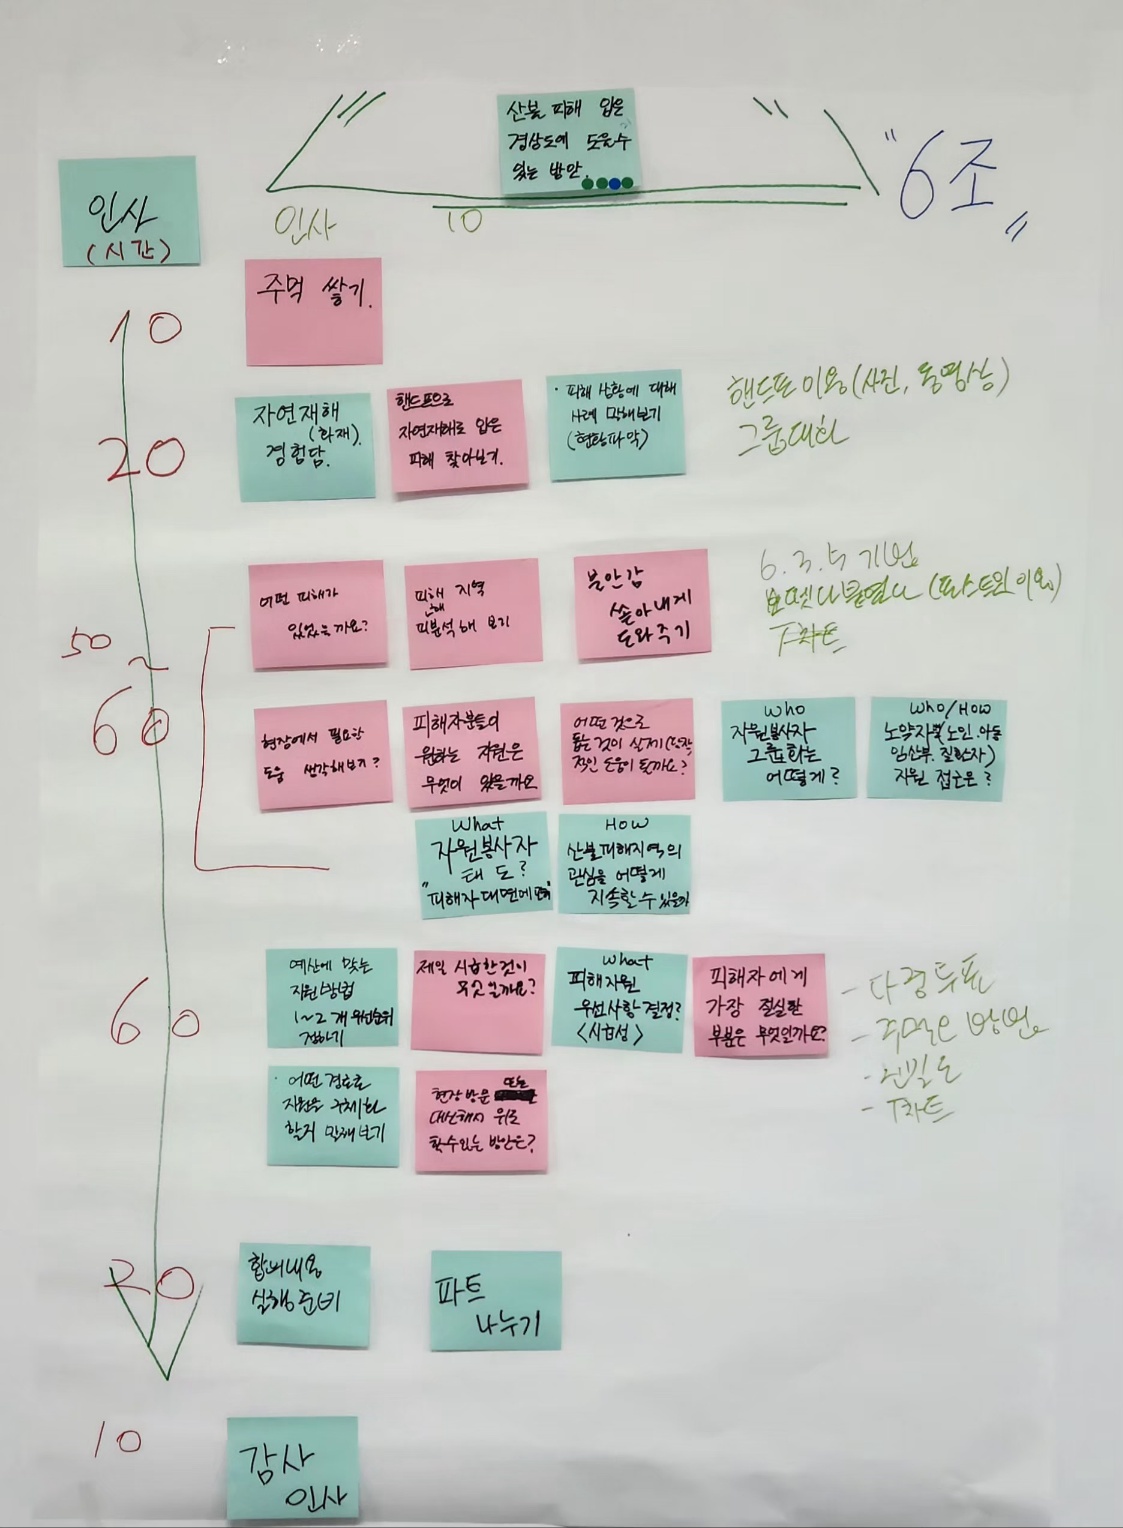 산불 피해 입은
경상도에 도울수
있는 방안.
"6조"
인사
(시간)
인사 10
10
주먹 쌓기.
20
자연재해
(화재).
경험담.
핸드폰으로
자연재해로 입은
피해 찾아보기.
· 피해 상황에 대해
사례 말해보기
(현황파악)
핸드폰 이용(사진, 동영상)
그룹대화
50
~
60
어떤 피해가
있었을까요?
피해 지역
피분석해 보기
불안감
쏟아내게
도와주기
6.3.5 기법
(포스트잇 이용)
T차트
현장에서 필요한
도움 생각해보기?
피해자분들이
원하는 자원은
무엇이 있을까요
어떤 것으로
돕는것이 실제
적인 도움이 될까요?
Who
자원봉사자
그룹화는
어떻게?
Who/How
노약자(노인.아동
임산부. 질환자)
자원 접근은?
What
자원봉사자
태도?
"피해자 대면에
How
산불피해지역의
관심을 어떻게
지속할 수 있을까
60
예산에 맞는
지원방법
1~2개 우선순위
정하기
제일 시급한것이
무엇일까요?
What
피해지원
우선사항 결정?
<시급성>
피해자에게
가장 절실한
부분은 무엇인까요?
- 다중투표
- T차트
· 어떤 경로로
지원을 구체화
할지 말해보기
현장방문 또는
대신해서 위로
할수있는 방안은?
20
합의내용
실행준비
파트
나누기
10
감사
인사